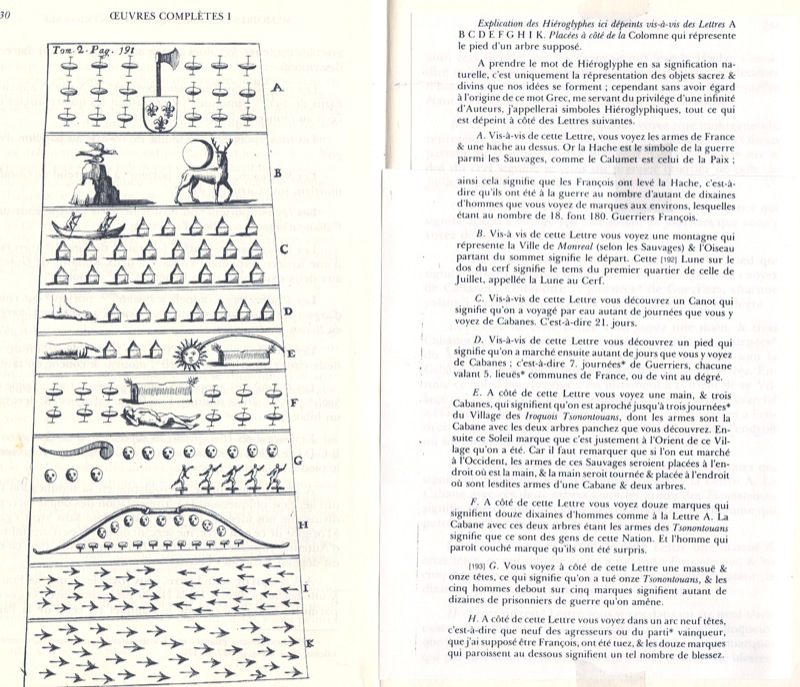 30 ŒUVRES COMPLÈTES I
Tom. 2. Pag. 191
A
B
C
D
E
F
G
H
I
K
Explication des Hiéroglyphes ici dépeints vis-à-vis des Lettres A
B C D E F G H I K. Placées à côté de la Colomne qui réprésente
le pied d'un arbre supposé.
A prendre le mot de Hiéroglyphe en sa signification na-
turelle, c'est uniquement la répresentation des objets sacrez &
divins que nos idées se forment ; cependant sans avoir égard
à l'origine de ce mot Grec, me servant du privilége d'une infinité
d'Auteurs, j'appellerai simboles Hiéroglyphiques, tout ce qui
est dépeint à côté des Lettres suivantes.
A. Vis-à-vis de cette Lettre, vous voyez les armes de France
& une hache au dessus. Or la Hache est le simbole de la guerre
parmi les Sauvages, comme le Calumet est celui de la Paix ;
ainsi cela signifie que les François ont levé la Hache, c'est-à-
dire qu'ils ont été à la guerre au nombre d'autant de dixaines
d'hommes que vous voyez de marques aux environs, lesquelles
étant au nombre de 18. font 180. Guerriers François.
B. Vis-à vis de cette Lettre vous voyez une montagne qui
réprésente la Ville de Monreal (selon les Sauvages) & l'Oiseau
partant du sommet signifie le départ. Cette [192] Lune sur le
dos du cerf signifie le tems du premier quartier de celle de
Juillet, appellée la Lune au Cerf.
C. Vis-à-vis de cette Lettre vous découvrez un Canot qui
signifie qu'on a voyagé par eau autant de journées que vous y
voyez de Cabanes. C'est-à-dire 21. jours.
D. Vis-à-vis de cette Lettre vous découvrez un pied qui
signifie qu'on a marché ensuite autant de jours que vous y voyez
de Cabanes ; c'est-à-dire 7. journées* de Guerriers, chacune
valant 5. lieuës* communes de France, ou de vint au dégré.
E. A côté de cette Lettre vous voyez une main, & trois
Cabanes, qui signifient qu'on est aproché jusqu'à trois journées*
du Village des Iroquois Tsonontouans, dont les armes sont la
Cabane avec les deux arbres panchez que vous découvrez. En-
suite ce Soleil marque que c'est justement à l'Orient de ce Vil-
lage qu'on a été. Car il faut remarquer que si l'on eut marché
à l'Occident, les armes de ces Sauvages seroient placées à l'en-
droit où est la main, & la main seroit tournée & placée à l'endroit
où sont lesdites armes d'une Cabane & deux arbres.
F. A côté de cette Lettre vous voyez douze marques qui
signifient douze dixaines d'hommes comme à la Lettre A. La
Cabane avec ces deux arbres étant les armes des Tsonontouans
signifie que ce sont des gens de cette Nation. Et l'homme qui
paroît couché marque qu'ils ont été surpris.
[193] G. Vous voyez à côté de cette Lettre une massuë &
onze têtes, ce qui signifie qu'on a tué onze Tsonontouans, & les
cinq hommes debout sur cinq marques signifient autant de
dizaines de prisonniers de guerre qu'on amène.
H. A côté de cette Lettre vous voyez dans un arc neuf têtes,
c'est-à-dire que neuf des agresseurs ou du parti* vainqueur,
que j'ai supposé être François, ont été tuez, & les douze marques
qui paroissent au dessous signifient un tel nombre de blessez.